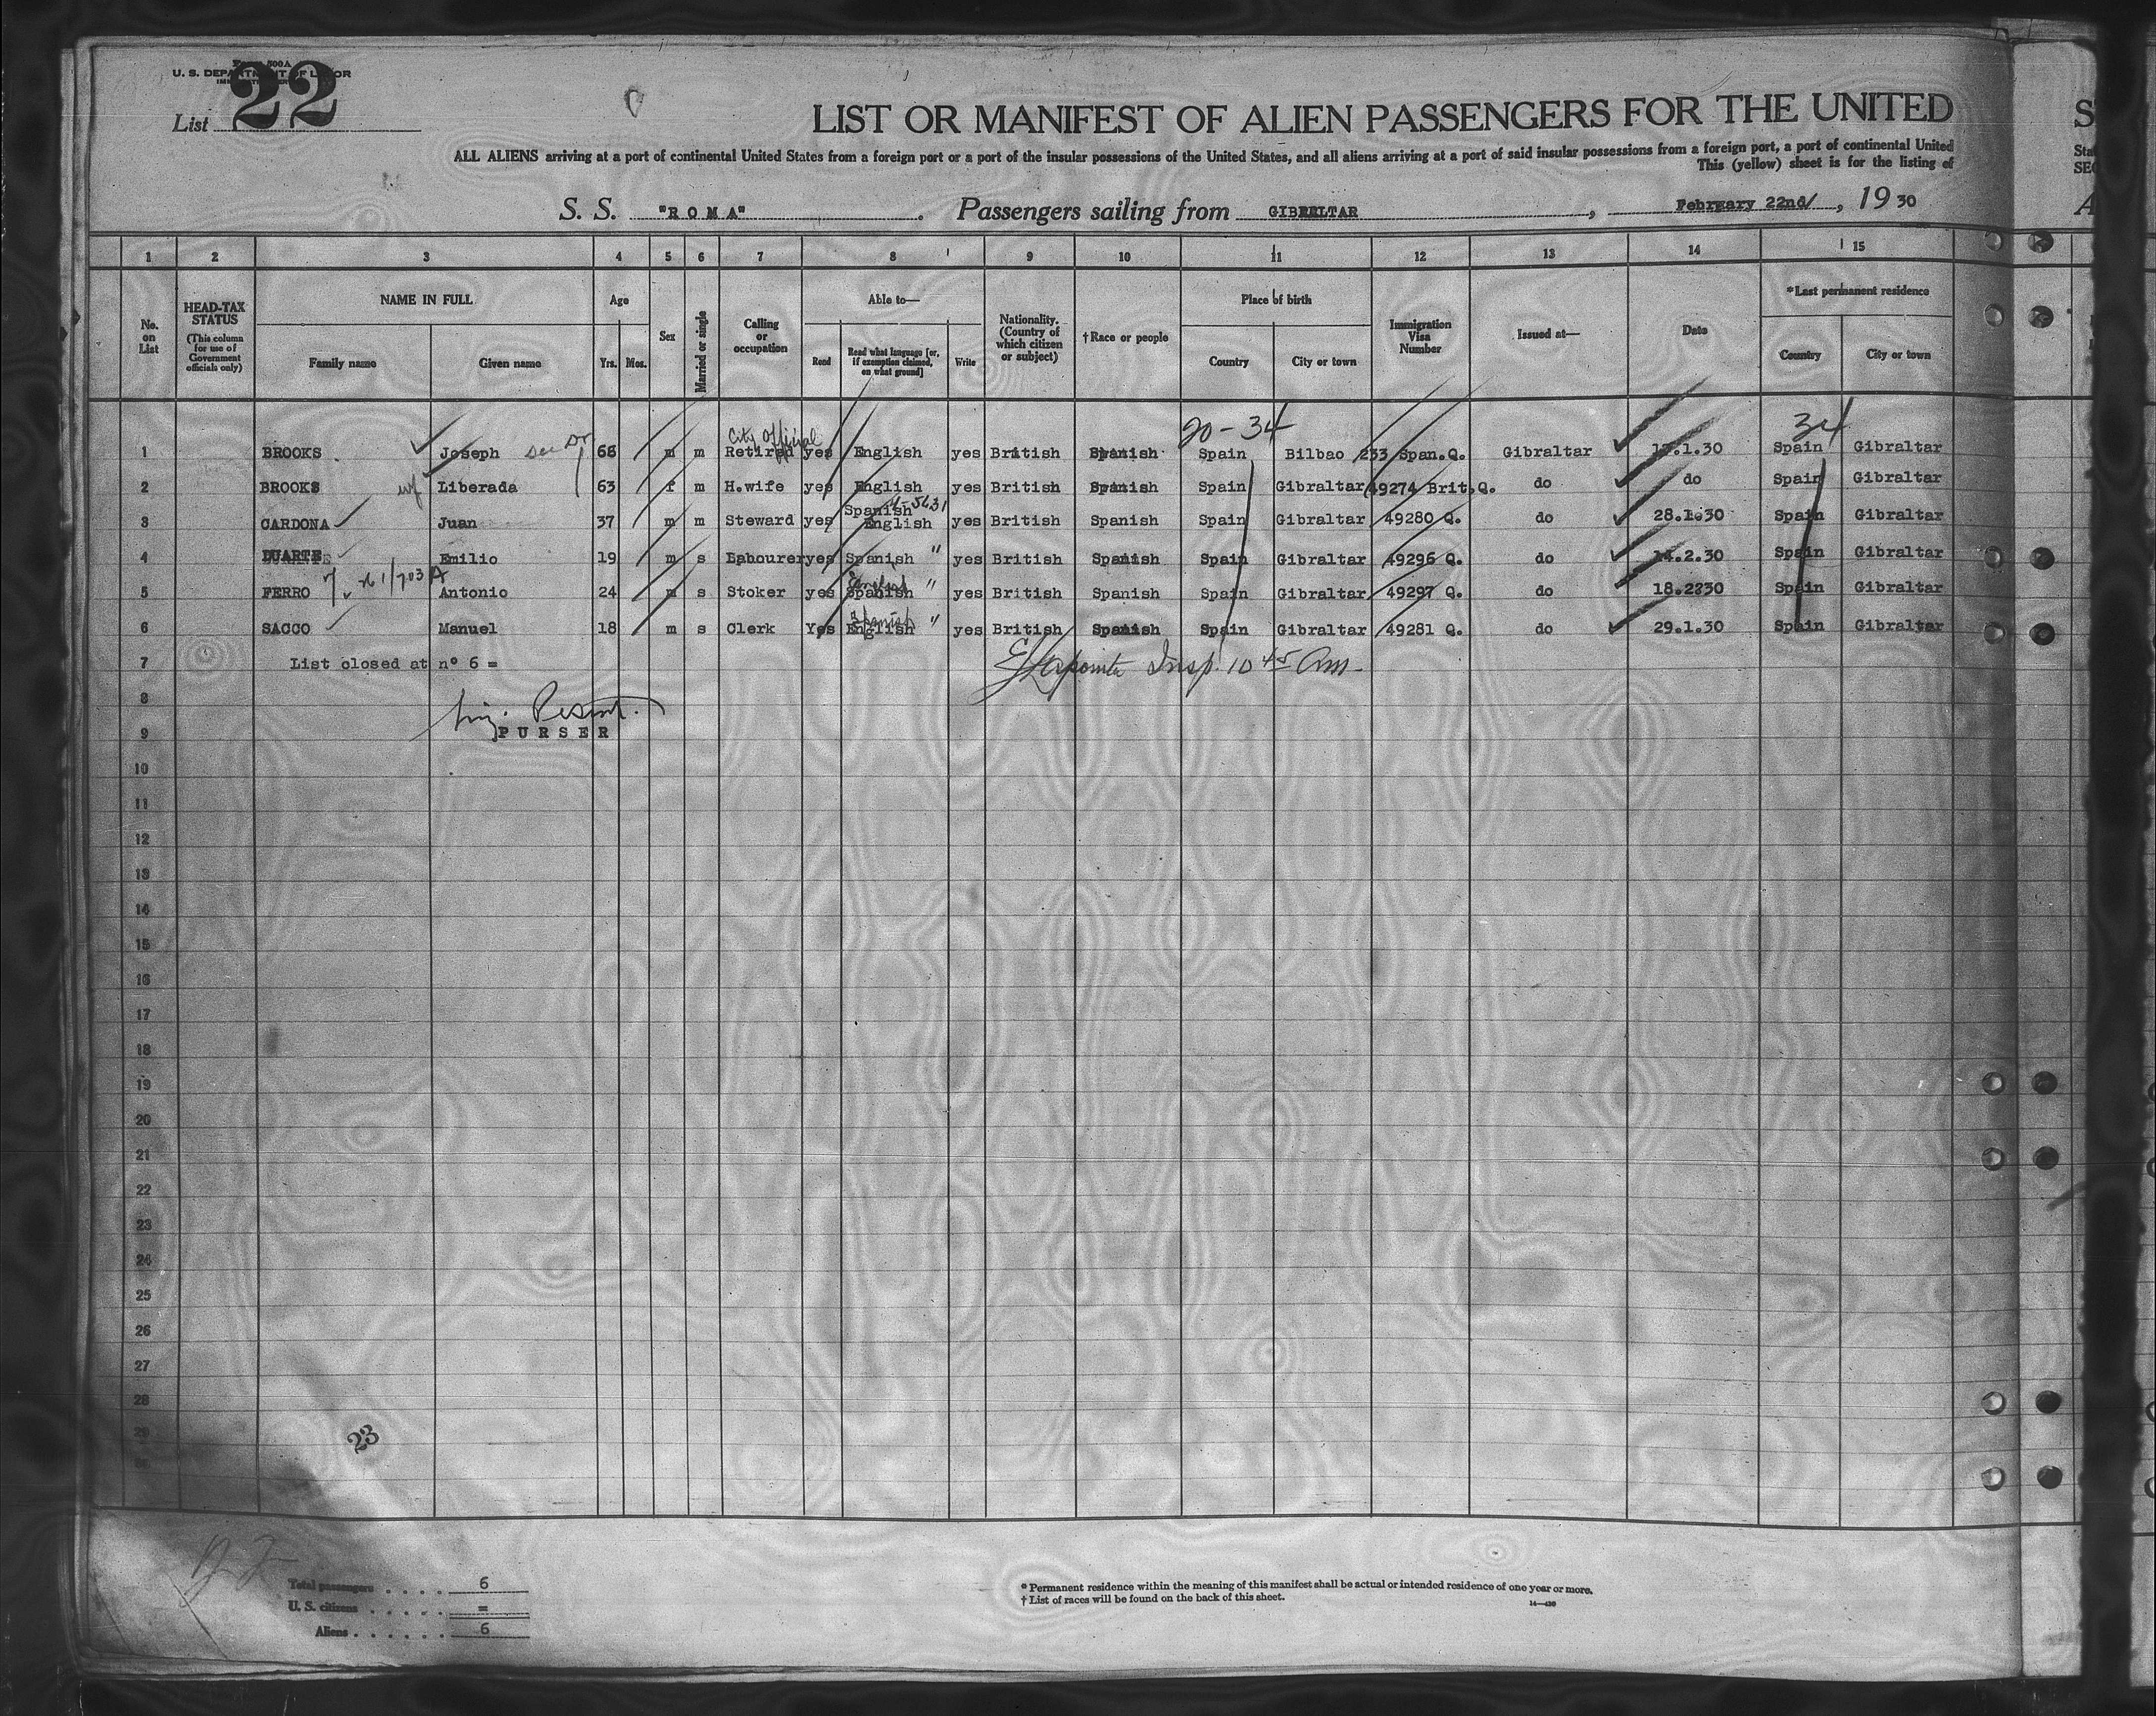 Form 500A
U. S. DEPARTMENT OF LABOR
List 22
LIST OR MANIFEST OF ALIEN PASSENGERS FOR THE UNITED
ALL ALIENS arriving at a port of continental United States from a foreign port or a port of the insular possessions of the United States, and all aliens arriving at a port of said insular possessions from a foreign port, a port of continental United
This (yellow) sheet is for the listing of
S. S. "ROMA". Passengers sailing from GIBRALTAR, February 22nd/, 19 30
1 2 3 4 5 6 7 8 9 10 11 12 13 14 15
No. on List
HEAD-TAX STATUS (This column for use of Government officials only)
NAME IN FULL
Family name Given name
Age
Yrs. Mos.
Sex
Married or single
Calling or occupation
Able to—
Read Read what language [or, if exemption claimed, on what ground] Write
Nationality. (Country of which citizen or subject)
†Race or people
Place of birth
Country City or town
Immigration Visa Number
Issued at—
Date
*Last permanent residence
Country City or town
20-34 34
City Official
1 BROOKS Joseph 66 m m Retired yes English yes British Spanish Spain Bilbao 233 Span.Q. Gibraltar .1.30 Spain Gibraltar
2 BROOKS wf Liberada 63 f m H.wife yes English yes British Spanish Spain Gibraltar 49274 Brit.Q. do do Spain Gibraltar
3 CARDONA Juan 37 m m Steward yes Spanish English yes British Spanish Spain Gibraltar 49280 Q. do 28.1.30 Spain Gibraltar
4 DUARTE Emilio 19 m s Labourer yes Spanish " yes British Spanish Spain Gibraltar 49296 Q. do 14.2.30 Spain Gibraltar
5 FERRO Antonio 24 m s Stoker yes English Spanish " yes British Spanish Spain Gibraltar 49297 Q. do 18.2.30 Spain Gibraltar
6 SACCO Manuel 18 m s Clerk Yes Spanish English " yes British Spanish Spain Gibraltar 49281 Q. do 29.1.30 Spain Gibraltar
7 List closed at nº 6 = Insp. 10 45 Am
8
9 PURSER
10
11
12
13
14
15
16
17
18
19
20
21
22
23
24
25
26
27
28
29
23
Total passengers . . . . 6
U. S. citizens . . . . . =
Aliens . . . . . . 6
* Permanent residence within the meaning of this manifest shall be actual or intended residence of one year or more.
† List of races will be found on the back of this sheet.